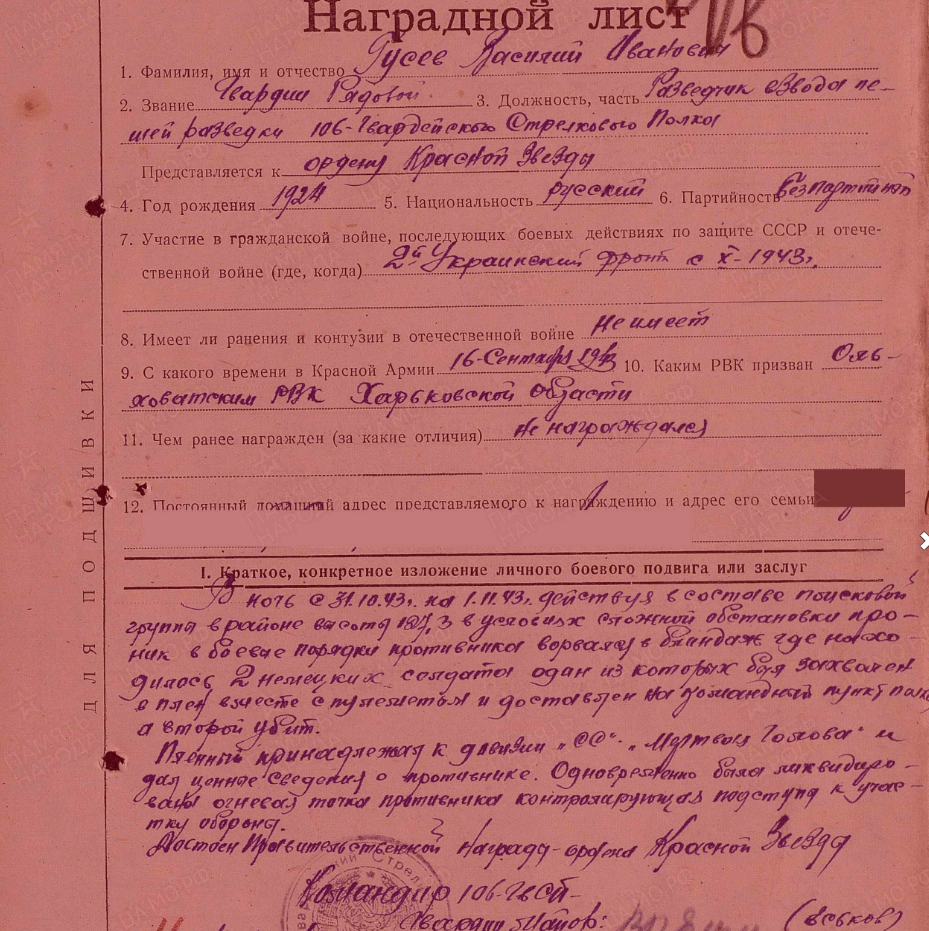 Наградной лист
1. Фамилия, имя и отчество Гусев Василий Иванович
2. Звание Гвардии Рядовой 3. Должность, часть Разведчик взвода пе-
шей разведки 106-Гвардейского Стрелкового Полка
Представляется к ордену Красной Звезды
4. Год рождения 1924 5. Национальность русский 6. Партийность безпартийный
7. Участие в гражданской войне, последующих боевых действиях по защите СССР и отече-
ственной войне (где, когда) 2й Украинский фронт с X-1943г.
8. Имеет ли ранения и контузии в отечественной войне Не имеет
9. С какого времени в Красной Армии 16-Сентября 10. Каким РВК призван Оль-
ховатским РВК Харьковской области
11. Чем ранее награжден (за какие отличия) Не награждался
12. Постоянный домашний адрес представляемого к награждению и адрес его семьи
ДЛЯ ПОДШИВКИ
I. Краткое, конкретное изложение личного боевого подвига или заслуг
В ночь с 31.10.43г. на 1.11.43г. действуя в составе поисковой
группы в районе высоты в условиях сложной обстановки про-
ник в боевые порядки противника ворвался в блиндаж где нахо-
дилось 2 немецких солдата один из которых был захвачен
в плен вместе с пулеметом и доставлен на командный пункт полка
а второй убит.
Пленный принадлежал к дивизии „СС" „Мертвая Голова" и
дал ценные сведения о противнике. Одновременно была ликвидиро-
вана огневая точка противника контролирующая подступы к учас-
тку обороны.
Достоен Правительственной Награды-ордена Красной Звезды
Командир 106-Гвсп-
Гвардии Майор: (Вськов)